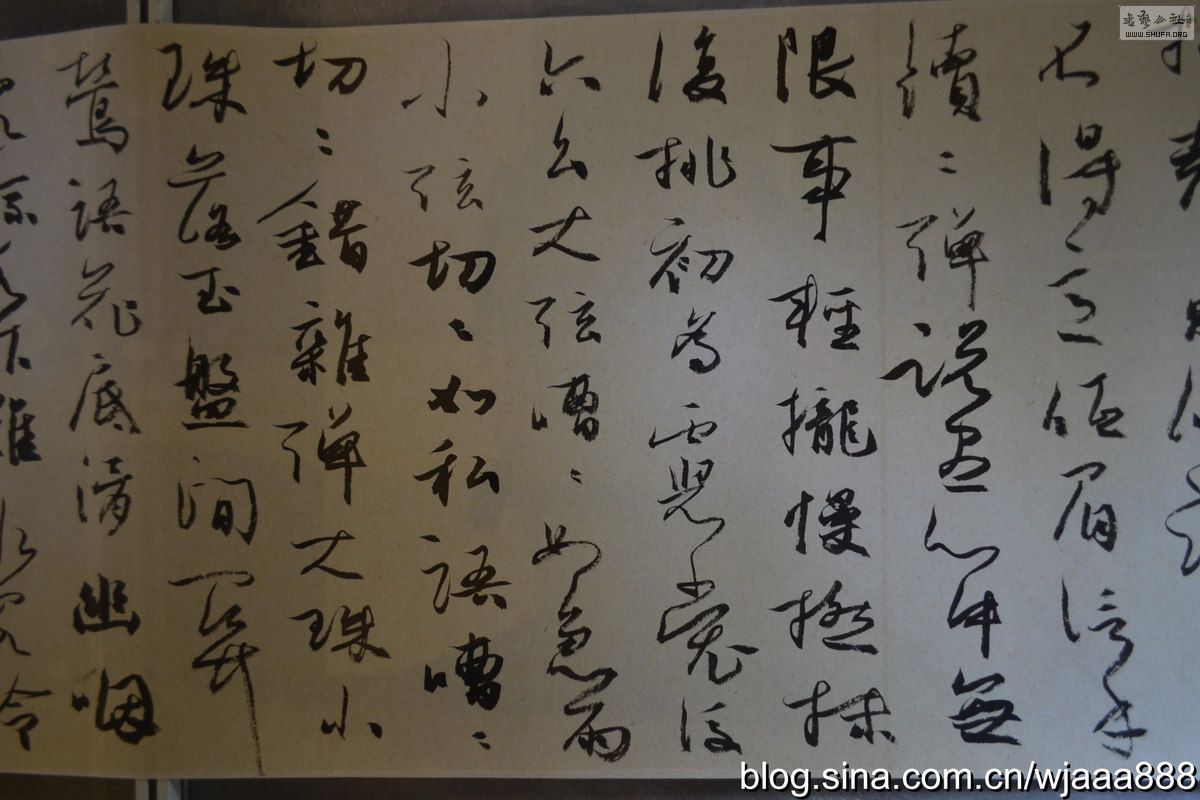 不得意低眉信手
續〻彈説盡心中無
限事輕攏慢撚抹
復挑初為霓裳後
六幺大弦嘈〻如急雨
小弦切〻如私語嘈〻
切〻錯雜彈大珠小
珠落玉盤間關
鶯語花底滑幽咽
下難
書藝公社
WWW.SHUFA.ORG
blog.sina.com.cn/wjaaa888